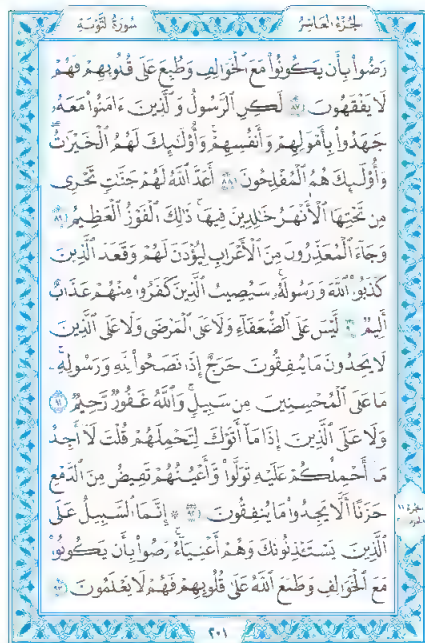 الجزء العاشر
سورة التوبة
رَضُوا۟ بِأَن يَكُونُوا۟ مَعَ ٱلْخَوَالِفِ وَطُبِعَ عَلَىٰ قُلُوبِهِمْ فَهُمْ
لَا يَفْقَهُونَ ٨٧ لَٰكِنِ ٱلرَّسُولُ وَٱلَّذِينَ ءَامَنُوا۟ مَعَهُۥ
جَٰهَدُوا۟ بِأَمْوَٰلِهِمْ وَأَنفُسِهِمْ ۚ وَأُو۟لَٰٓئِكَ لَهُمُ ٱلْخَيْرَٰتُ ۖ
وَأُو۟لَٰٓئِكَ هُمُ ٱلْمُفْلِحُونَ ٨٨ أَعَدَّ ٱللَّهُ لَهُمْ جَنَّٰتٍ تَجْرِى
مِن تَحْتِهَا ٱلْأَنْهَٰرُ خَٰلِدِينَ فِيهَا ۚ ذَٰلِكَ ٱلْفَوْزُ ٱلْعَظِيمُ ٨٩
وَجَآءَ ٱلْمُعَذِّرُونَ مِنَ ٱلْأَعْرَابِ لِيُؤْذَنَ لَهُمْ وَقَعَدَ ٱلَّذِينَ
كَذَبُوا۟ ٱللَّهَ وَرَسُولَهُۥ ۚ سَيُصِيبُ ٱلَّذِينَ كَفَرُوا۟ مِنْهُمْ عَذَابٌ
أَلِيمٌ ٩٠ لَّيْسَ عَلَى ٱلضُّعَفَآءِ وَلَا عَلَى ٱلْمَرْضَىٰ وَلَا عَلَى ٱلَّذِينَ
لَا يَجِدُونَ مَا يُنفِقُونَ حَرَجٌ إِذَا نَصَحُوا۟ لِلَّهِ وَرَسُولِهِۦ ۚ
مَا عَلَى ٱلْمُحْسِنِينَ مِن سَبِيلٍ ۚ وَٱللَّهُ غَفُورٌ رَّحِيمٌ ٩١
وَلَا عَلَى ٱلَّذِينَ إِذَا مَآ أَتَوْكَ لِتَحْمِلَهُمْ قُلْتَ لَآ أَجِدُ
مَآ أَحْمِلُكُمْ عَلَيْهِ تَوَلَّوا۟ وَّأَعْيُنُهُمْ تَفِيضُ مِنَ ٱلدَّمْعِ
حَزَنًا أَلَّا يَجِدُوا۟ مَا يُنفِقُونَ ٩٢ ۞ إِنَّمَا ٱلسَّبِيلُ عَلَى
ٱلَّذِينَ يَسْتَـْٔذِنُونَكَ وَهُمْ أَغْنِيَآءُ ۚ رَضُوا۟ بِأَن يَكُونُوا۟
مَعَ ٱلْخَوَالِفِ وَطَبَعَ ٱللَّهُ عَلَىٰ قُلُوبِهِمْ فَهُمْ لَا يَعْلَمُونَ ٩٣
٢٠١